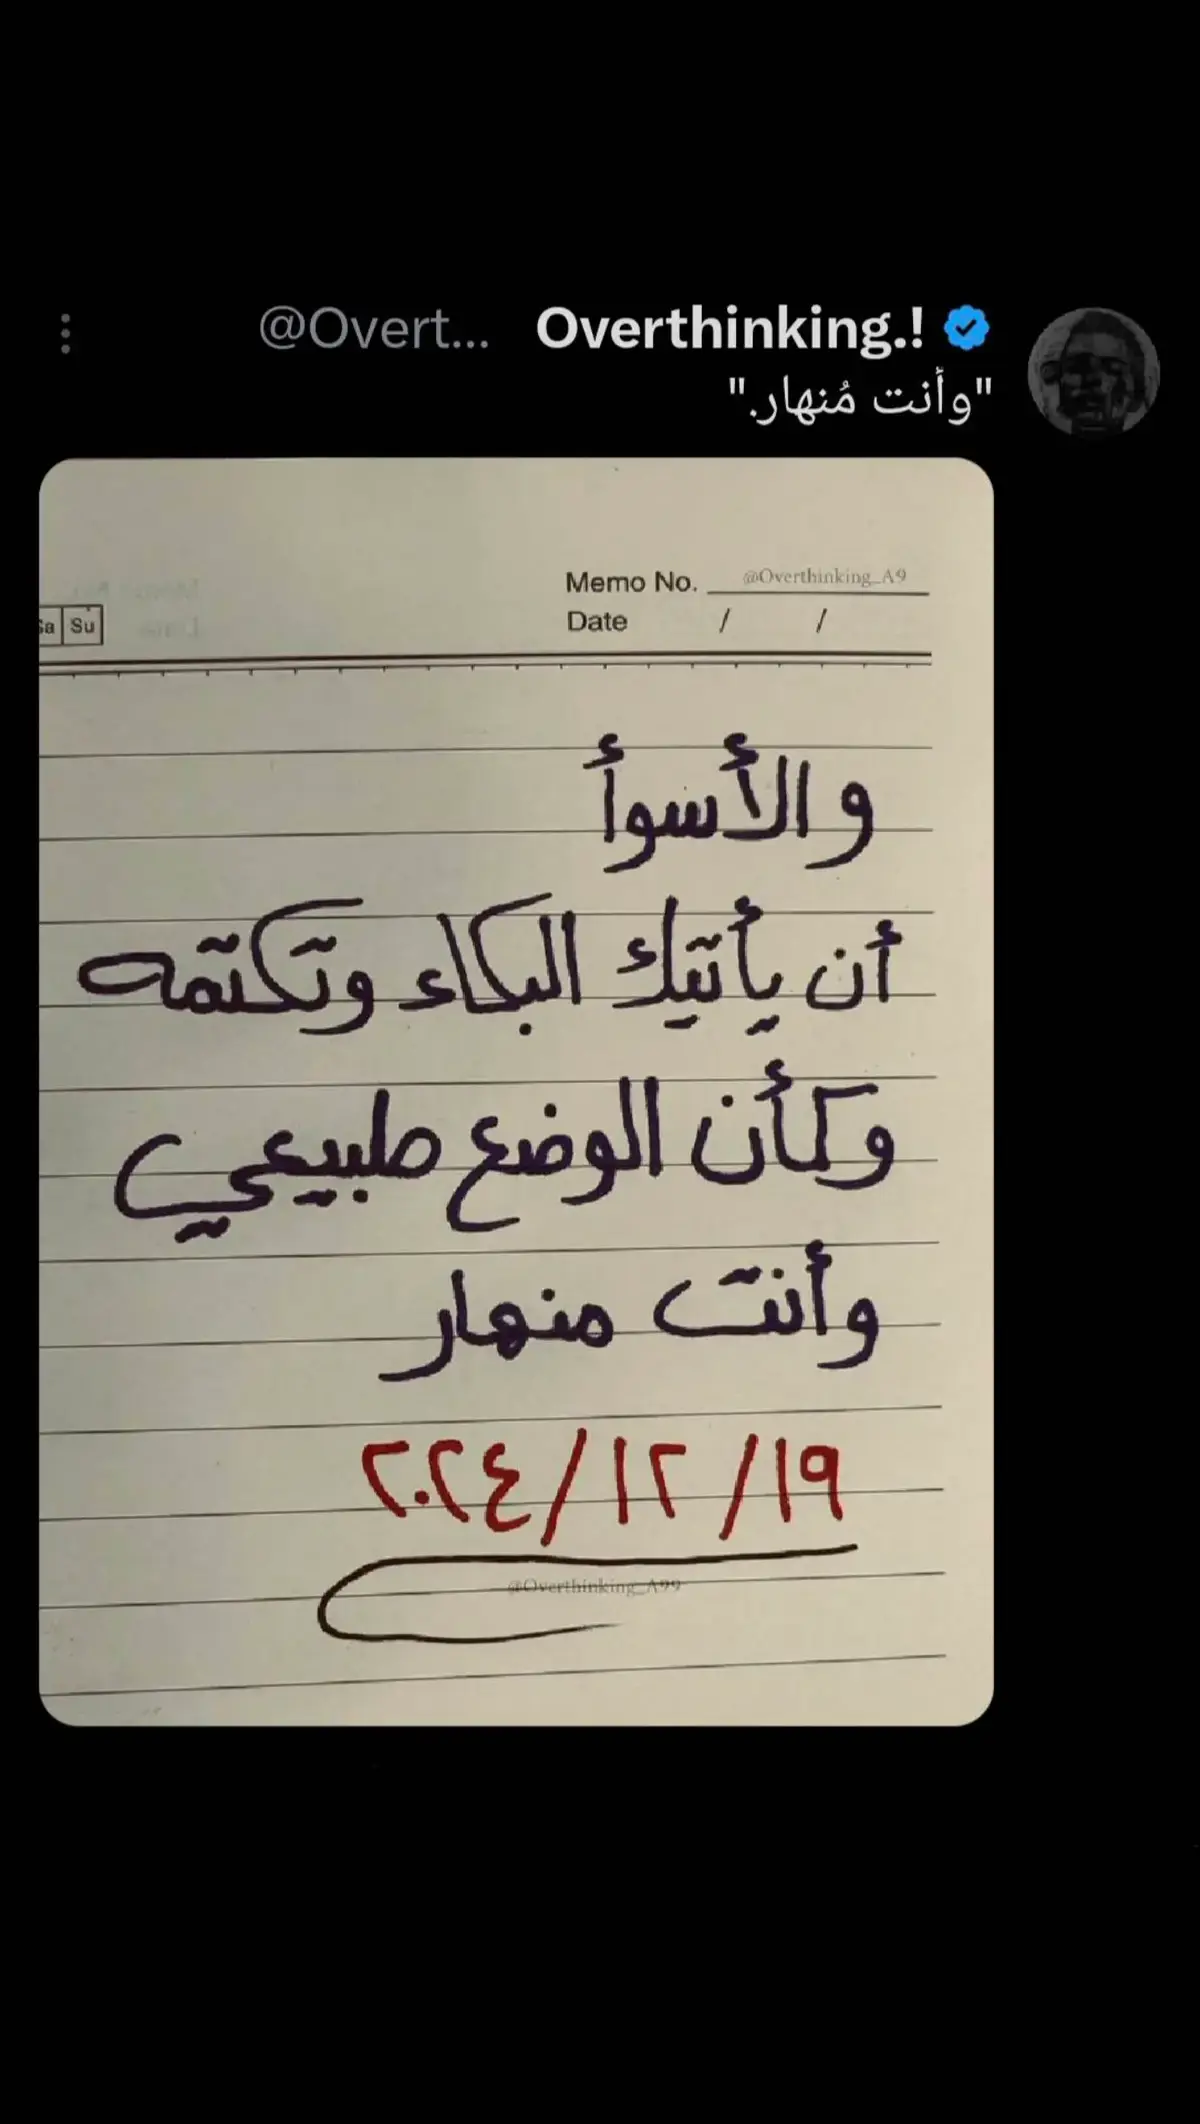 Overthinking.! @Overt...
"وأنت مُنهار."
Memo No. @Overthinking_A9
Date / /
Sa Su
والأسوأ
أن يأتيك البكاء وتكتمه
وكأن الوضع طبيعي
وأنت منهار
١٩/ ١٢/ ٢٠٢٤
@Overthinking_A99